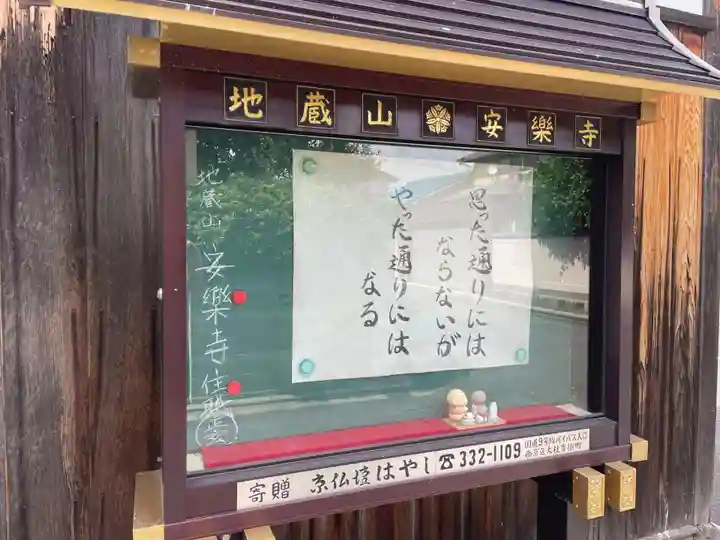 地蔵山 安樂寺
思った通りには
ならないが
やった通りには
なる
地蔵山 安樂寺 住職
寄贈 京仏壇はやし ☎332-1109
国道9号線バイパス入口